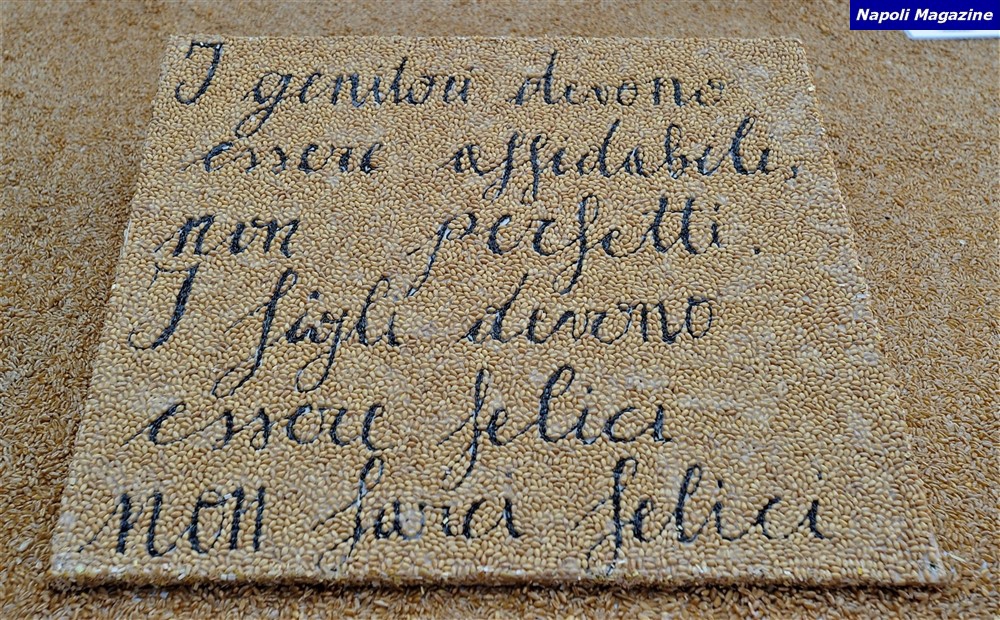 Napoli Magazine
I genitori devono
essere affidabili,
non perfetti.
I figli devono
essere felici
non farci felici